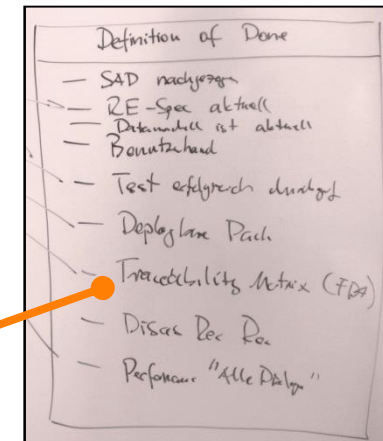 Definition of Done
— SAD nachgezogen
— RE-Spec aktuell
— Datenmodell ist aktuell
— Benutzerhand
— Test erfolgreich
— Deploy
— Traceability Matrix (FDA)
— Rec
— Performance "Alle Dialoge"